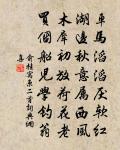 車馬滔滔灰軟紅
湖邊秋意屬西風
木犀初放荷花老
買個船兒學釣翁
俞桂寓京二首詞典網
集